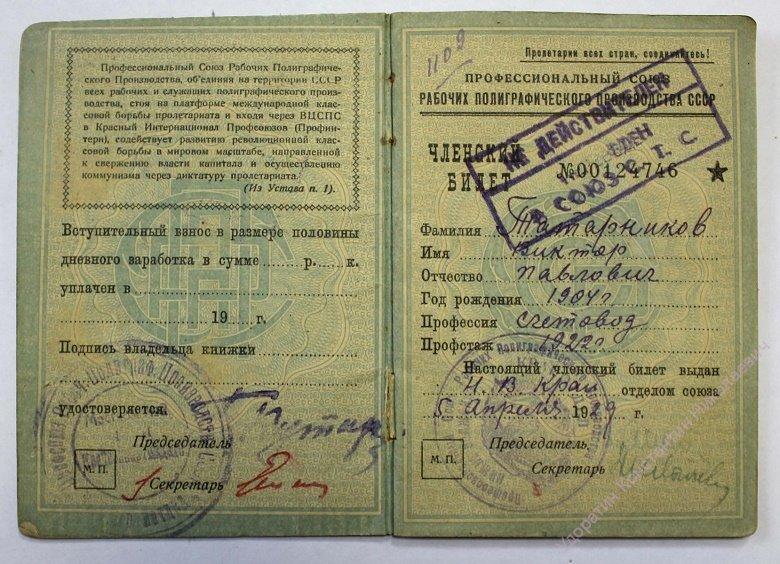 Профессиональный Союз Рабочих Полиграфиче-
ского Производства, объединяя на территории СССР
всех рабочих и служащих полиграфического произ-
водства, стоя на платформе международной клас-
совой борьбы пролетариата и входя через ВЦСПС
в Красный Интернационал Профсоюзов (Профин-
терн), содействует развитию революционной клас-
совой борьбы в мировом масштабе, направленной
к свержению власти капитала и осуществлению
коммунизма через диктатуру пролетариата.
(Из Устава п. 1).
Вступительный взнос в размере половины
дневного заработка в сумме р. к.
уплачен в
19 г.
Подпись владельца книжки
удостоверяется.
Председатель
М. П.
Секретарь
1109
Пролетарии всех стран, соединяйтесь!
ПРОФЕССИОНАЛЬНЫЙ СОЮЗ
РАБОЧИХ ПОЛИГРАФИЧЕСКОГО ПРОИЗВОДСТВА СССР
НЕ ДЕЙСТВИТЕЛЕН
В СОЮЗ С. Т. С.
ЧЛЕНСКИЙ
БИЛЕТ
№00124746
Фамилия Татарников
Имя Виктор
Отчество Павлович
Год рождения 1904 г
Профессия Счетовод
Профстаж 1922 г
Настоящий членский билет выдан
Н. В. Край отделом союза
5 апреля 1929 г.
Председатель
М. П.
Секретарь